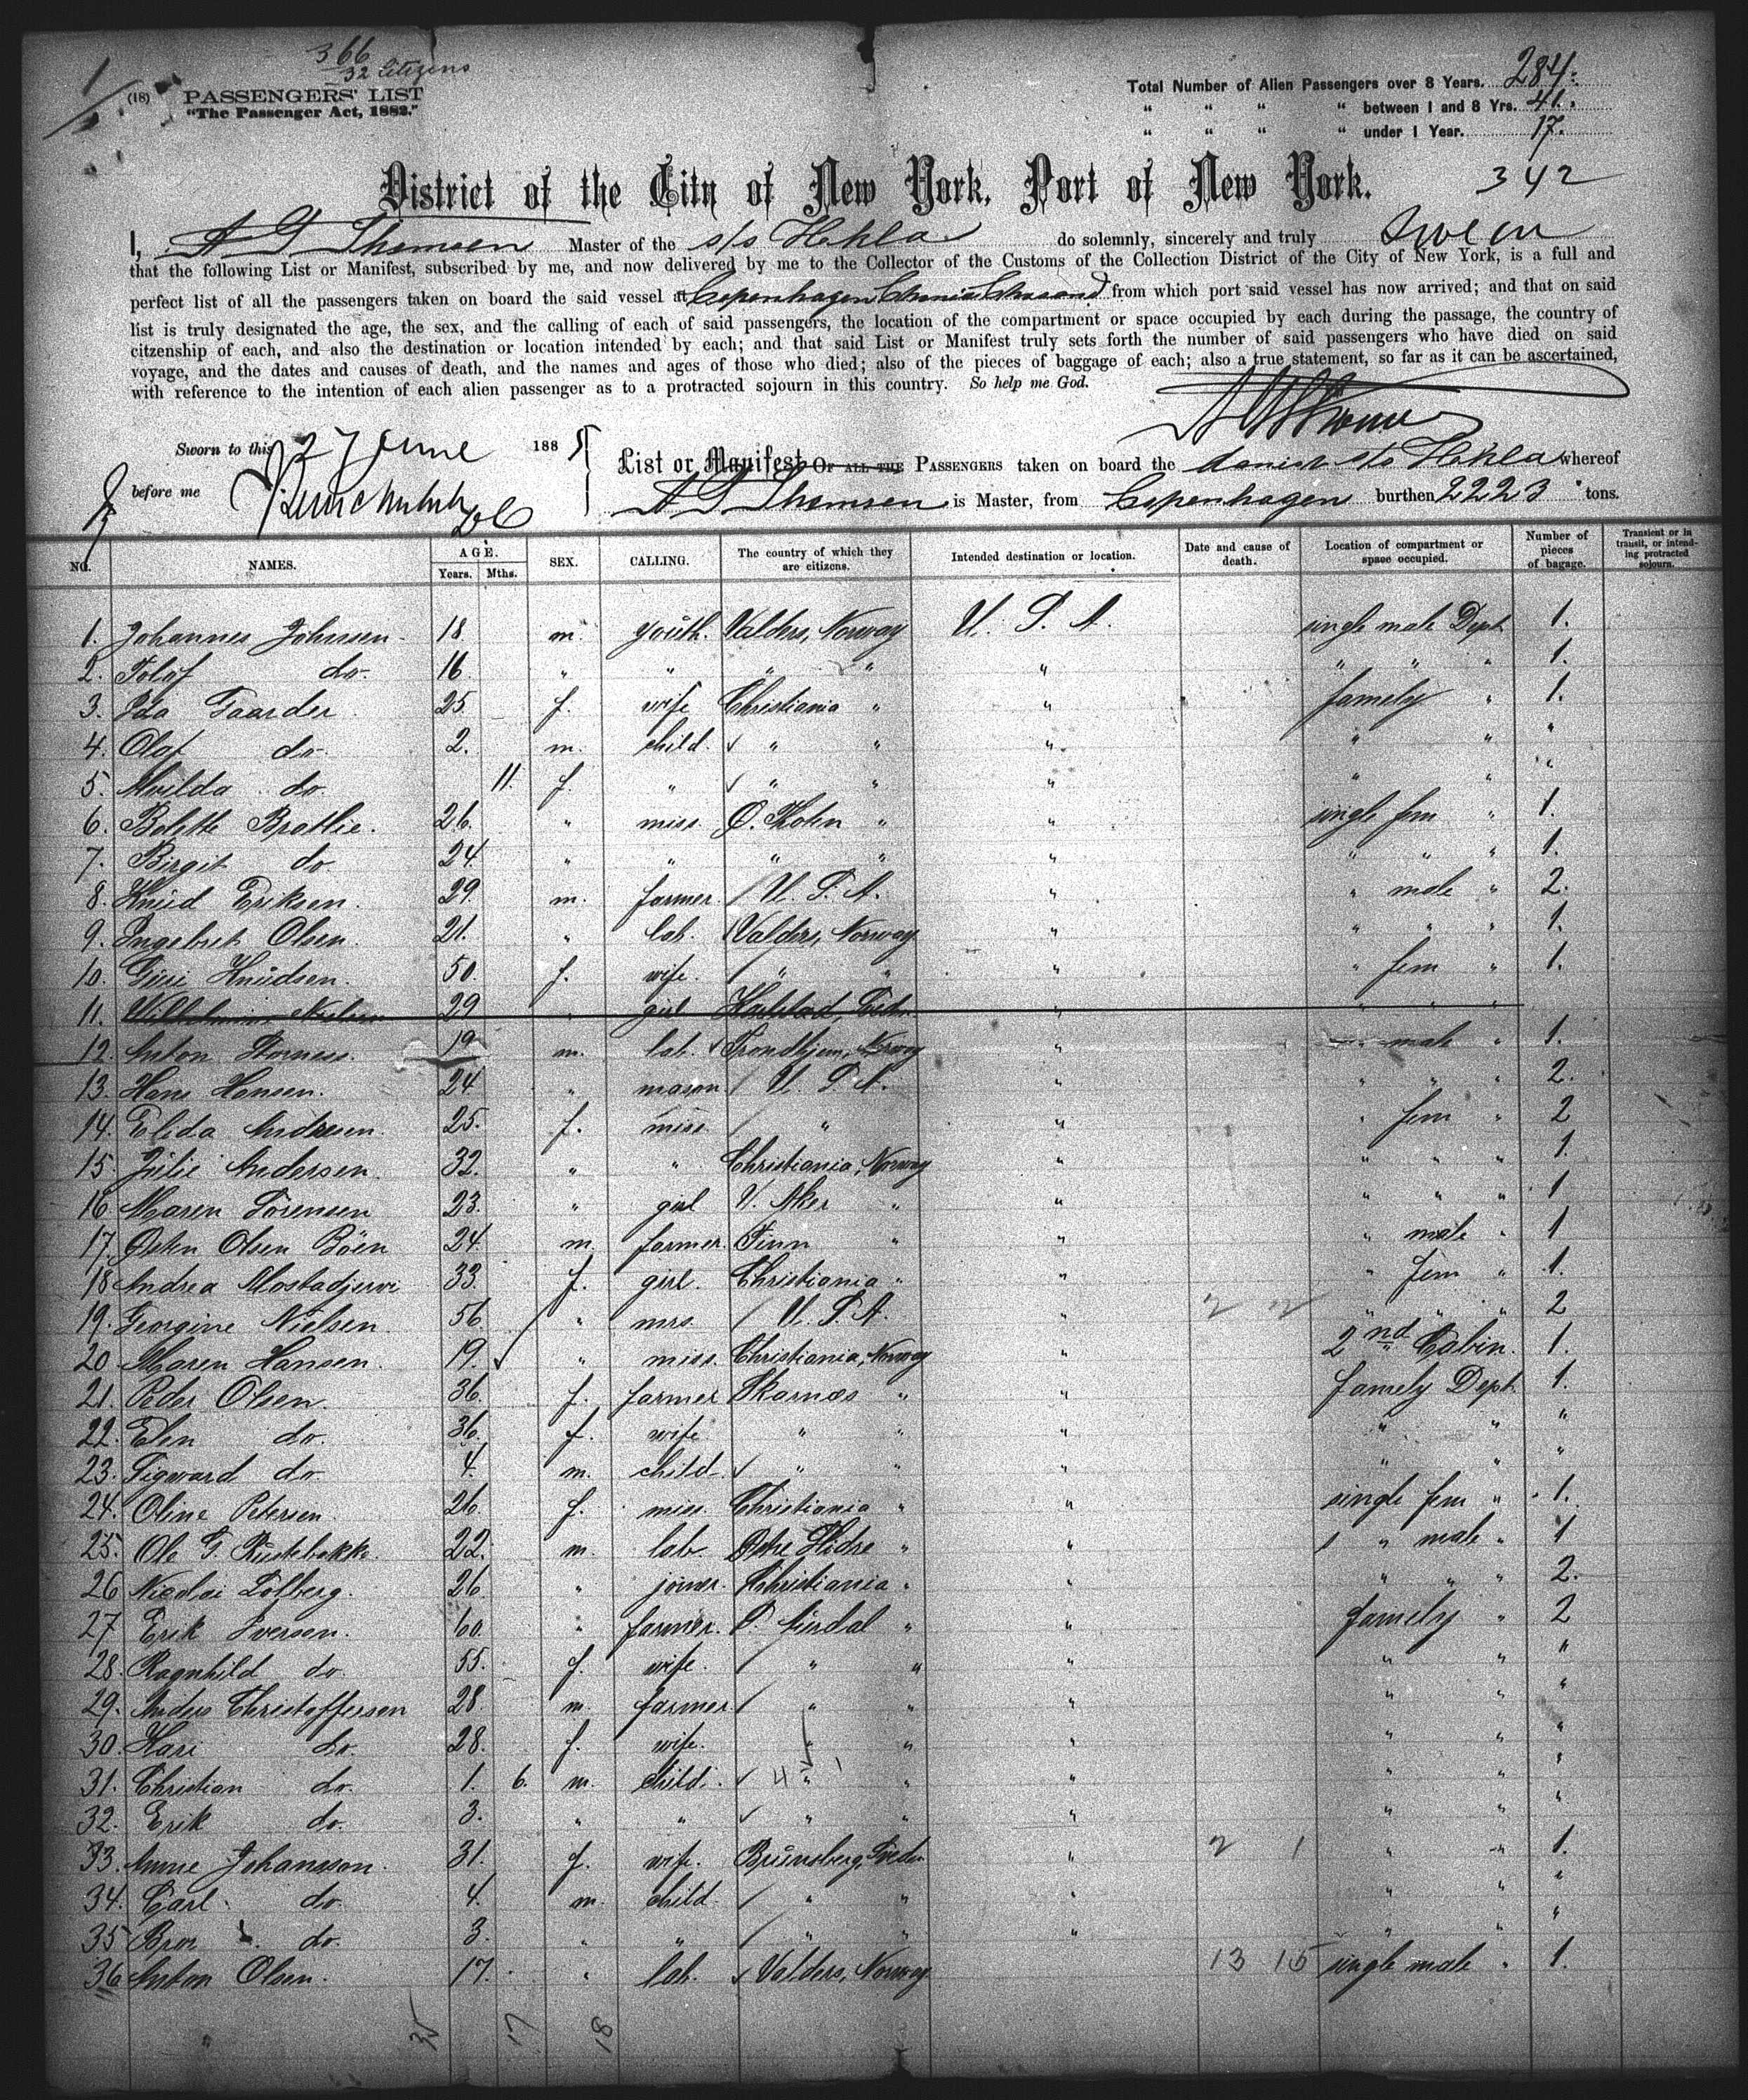 1
366
32 Citizens
(18) PASSENGERS' LIST
"The Passenger Act, 1882."
Total Number of Alien Passengers over 8 Years. 284.
" " " " between 1 and 8 Yrs. 41.
" " " " under 1 Year. 17.
342
District of the City of New York, Port of New York.
I, A G Thomsen Master of the s/s Hekla do solemnly, sincerely and truly Swear
that the following List or Manifest, subscribed by me, and now delivered by me to the Collector of the Customs of the Collection District of the City of New York, is a full and
perfect list of all the passengers taken on board the said vessel at Copenhagen from which port said vessel has now arrived; and that on said
list is truly designated the age, the sex, and the calling of each of said passengers, the location of the compartment or space occupied by each during the passage, the country of
citzenship of each, and also the destination or location intended by each; and that said List or Manifest truly sets forth the number of said passengers who have died on said
voyage, and the dates and causes of death, and the names and ages of those who died; also of the pieces of baggage of each; also a true statement, so far as it can be ascertained,
with reference to the intention of each alien passenger as to a protracted sojourn in this country. So help me God.
Sworn to this 27 June 1885
before me
List or Manifest OF ALL THE PASSENGERS taken on board the danish s/s Hekla whereof
A G Thomsen is Master, from Copenhagen burthen 2223 tons.
NO. NAMES. AGE. Years. Mths. SEX. CALLING. The country of which they are citizens. Intended destination or location. Date and cause of death. Location of compartment or space occupied. Number of pieces of bagage. Transient or in transit, or intending protracted sojourn.
1. Johannes Johnsen 18. m. youth. Valders, Norway U. S. A. single male Dept 1.
2. Tolof do. 16. " " " " " " " " 1.
3. Ida Gaarder 25. f. wife Christiania " " famely " 1.
4. Olof do. 2. m. child. " " " " " "
5. Alvilda do. 11. f. " " " " " " "
6. Bolette Brattlie. 26. " miss. Ø. Tholen " " single fem " 1.
7. Birgit do. 24. " " " " " " " " 1.
8. Knud Eriksen. 29. m. farmer. U. S. A. " " male " 2.
9. Ingebret Olsen. 21. " lab. Valders, Norway " " " " 1.
10. Guri Knudsen. 50. f. wife. " " " " fem " 1.
11. Wilhelmine Nielsen 29 " girl Karlstad, Sveden " " " "
12. Anton Stornæss. 19. m. lab. Trondhjem, Norway " " male " 1.
13. Hans Hansen. 24. " mason U. S. A. " " " " 2.
14. Elida Andresen. 25. f. miss " " " fem " 2
15. Julie Andersen 32. " " Christiania, Norway " " " " 1.
16. Maren Sörensen 23. " girl V. Aker " " " " " 1
17. Østen Olsen Böen 24. m. farmer. Tinn " " " male " 1
18 Andrea 33. f. girl. Christiania " " " fem " 1.
19. Georgine Nielsen. 56. " mrs. U. S. A. " 2 " " " 2
20 Maren Hansen. 19. " miss. Christiania, Norway " 2nd Cabin. 1.
21. Peder Olsen. 36. f. farmer Skarnæs " " famely Dept 1.
22. Elen do. 36. f. wife. " " " " " "
23. Sigvard do 4. m. child. " " " " " "
24. Oline Petersen. 26. f. miss. Christiania " " single fem " 1.
25. Ole G. Rustebakke. 22. m. lab. Østre Slidre " " " male " 1
26 Nicolai Solberg. 26. " joiner. Christiania " " " " " 2.
27 Erik Iversen. 60. " farmer. S. Aurdal " " famely " 2
28. Ragnhild do. 55. f. wife. " " " " " "
29. Anders Christoffersen 28. m. farmer " " " " " "
30. Kari do. 28. f. wife. " " " " " "
31. Christian do. 1. 6. m. child. 4 " " " " " "
32. Erik do. 3. " " " " " " " "
33. Anne Johansson. 31. f. wife. Brunsberg, Sveden " 2 1 " " 1.
34. Carl do. 4. m. child. " " " " " "
35 Bror do. 3. " " " " " " "
36 Anton Olsen. 17. " lab. Valders, Norway 13 15 single male " 1.
35 17 18